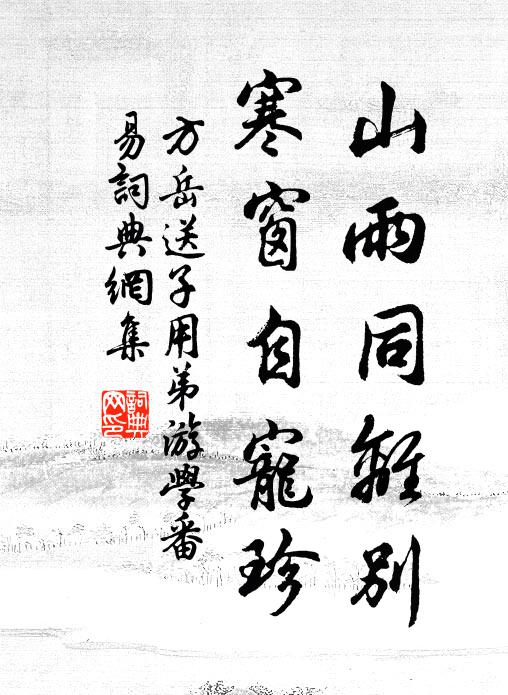 山雨同離別
寒窗自寵珍
方岳送子用弟游學番
易詞典網集
詞典网印